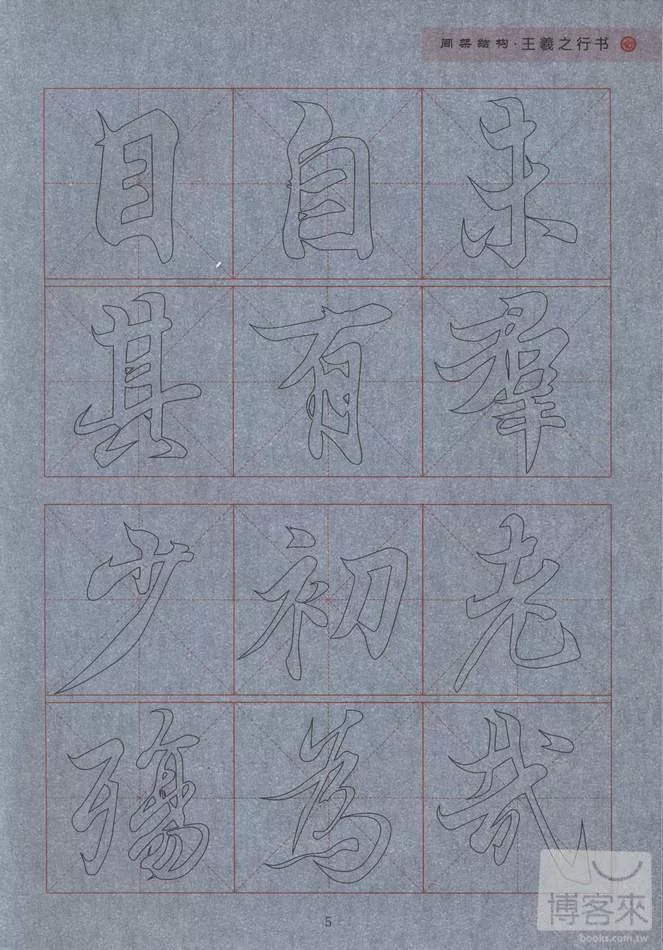 间架结构·王羲之行书
目自未
其有羣
少初老
殇為哉
5
博客來
books.com.tw